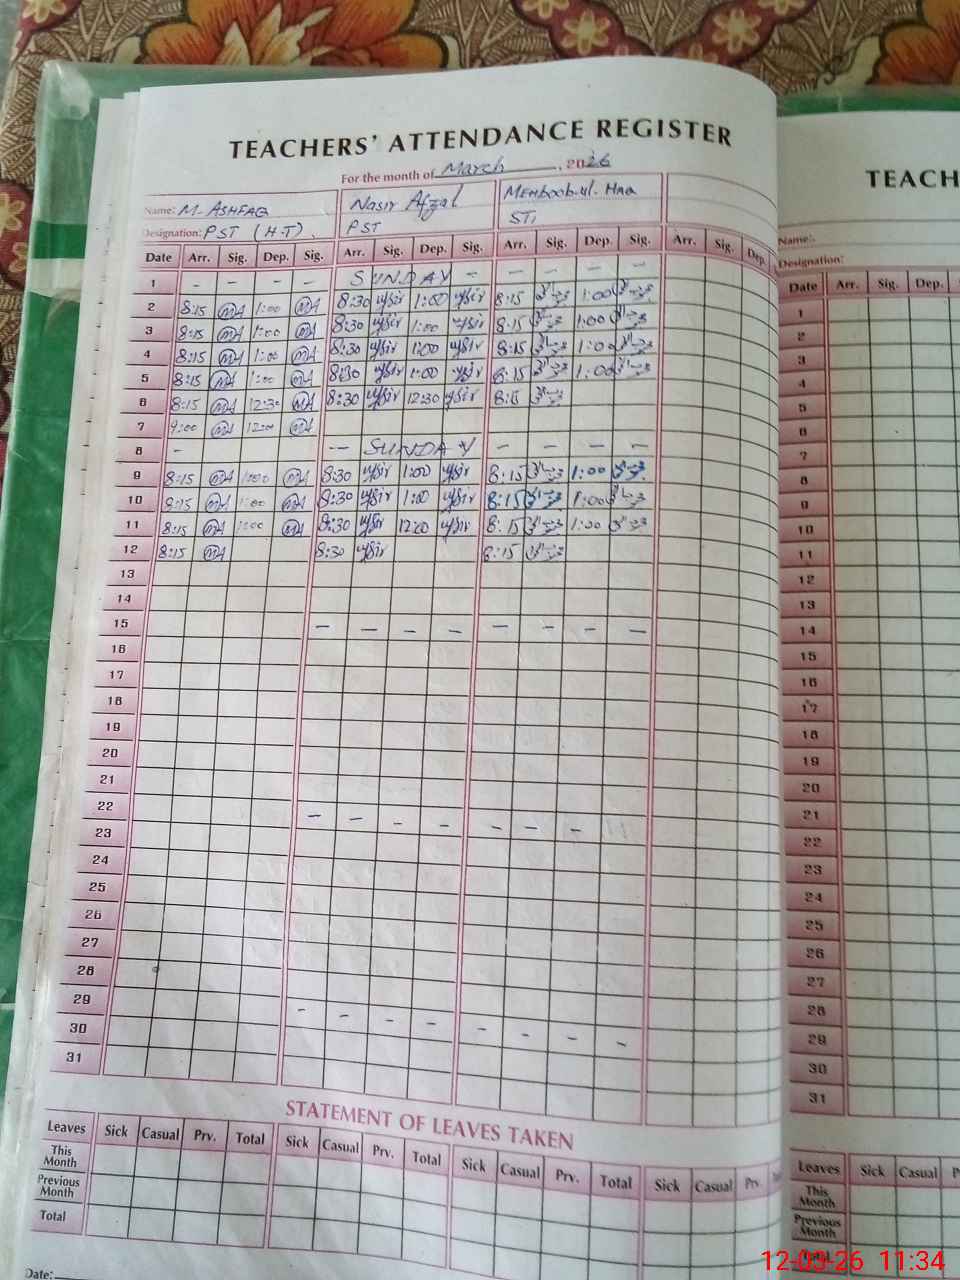 TEACHERS' ATTENDANCE REGISTER
For the month of March, 2026
Name: M. ASHFAQ Nasir Afzal Mehboob-ul-Haq
Designation: PST (H.T). PST STI
Date Arr. Sig. Dep. Sig. Arr. Sig. Dep. Sig. Arr. Sig. Dep. Sig. Arr. Sig. Dep.
1 - - - - SUNDAY - - - - -
2 8:15 MA 1:00 MA 8:30 1:00 8:15 1:00
3 8:15 MA 1:00 MA 8:30 1:00 8:15 1:00
4 8:15 MA 1:00 MA 8:30 1:00 8:15 1:00
5 8:15 MA 1:00 MA 8:30 1:00 8:15 1:00
6 8:15 MA 12:30 MA 8:30 12:30
7 9:00 MA 12:00 MA
8 - - SUNDAY - - - -
9 8:15 MA 1:00 MA 8:30 1:00 8:15 1:00
10 8:15 MA 1:00 MA 8:30 1:00 8:15 1:00
11 8:15 MA 1:00 MA 8:30 12:00 8:15 1:00
12 8:15 MA 8:30 8:15
13
14
15 - - - - - - - -
16
17
18
19
20
21
22 - - - - - - -
23
24
25
26
27
28
29 - - - - - - - -
30
31
STATEMENT OF LEAVES TAKEN
Leaves Sick Casual Prv. Total Sick Casual Prv. Total Sick Casual Prv. Total Sick Casual Prv.
This Month
Previous Month
Total
Date:
TEACH
Name:
Designation:
Date Arr. Sig. Dep.
1
2
3
4
5
6
7
8
9
10
11
12
13
14
15
16
17
18
19
20
21
22
23
24
25
26
27
28
29
30
31
Leaves Sick Casual
This Month
Previous Month
Total
12-03-26 11:34